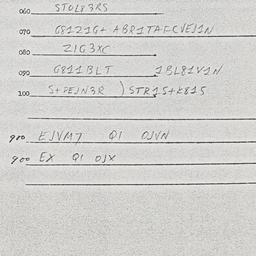 060 STOL83RS
070 G81Z1G+ ABR1TAFCVEJ1N
080 Z1G3XC
090 G811BLT 1BL81V1N
100 S+8EJN3R )STR15+K815
900 EJVM7 Q1 OJVN
900 EX Q1 OJX